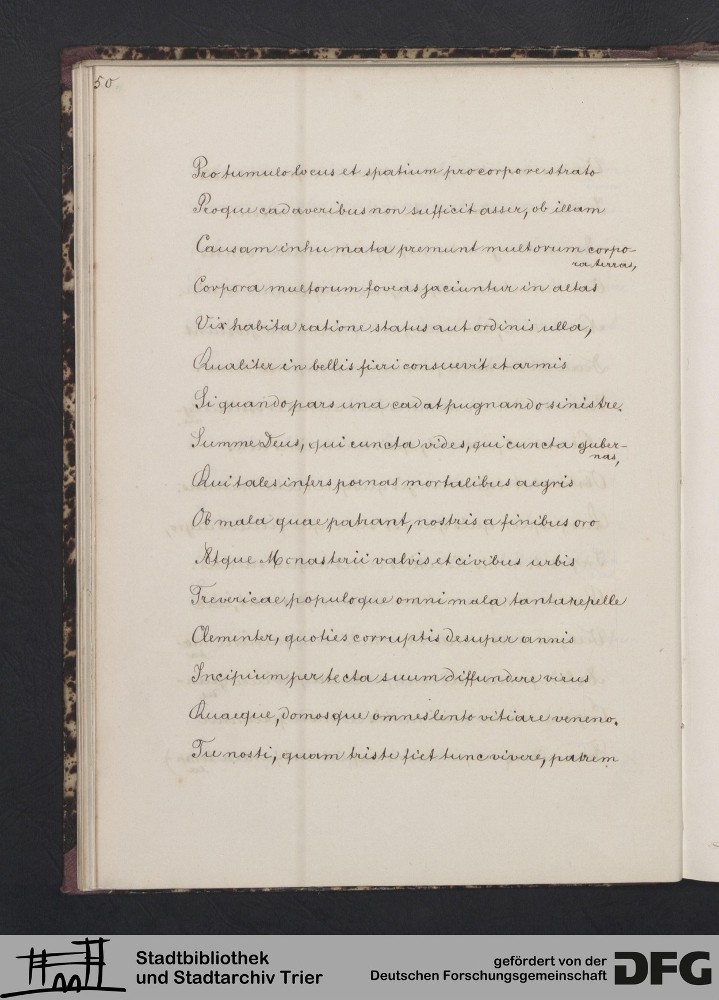 50
Pro tumulo locus et spatium pro corpore strato
Proque cadaveribus non sufficit asser, ob illam
Causam inhumata premunt multorum corpo-
ra terras,
Corpora multorum foveas jaciuntur in aetas
Vix habita ratione status aut ordinis ulla,
Qualiter in bellis fieri consuevit et armis
Si quando pars una cadat pugnando sinistre.
Summe Deus, qui cuncta vides, qui cuncta guber-
nas,
Qui tales infers poenas mortalibus aegris
Ob mala quae patrant, nostris a finibus oro
Atque Monasterii valvis et civibus urbis
Trevericae, populoque omni mala tanta repelle
Clementer, quoties corruptis desuper annis
Incipium per tecta suum diffundere virus
Quaeque, domosque omnes lento vitiare veneno.
Tu nosti, quam triste fiet tunc vivere, patrem
Stadtbibliothek
und Stadtarchiv Trier
gefördert von der
Deutschen Forschungsgemeinschaft
DFG